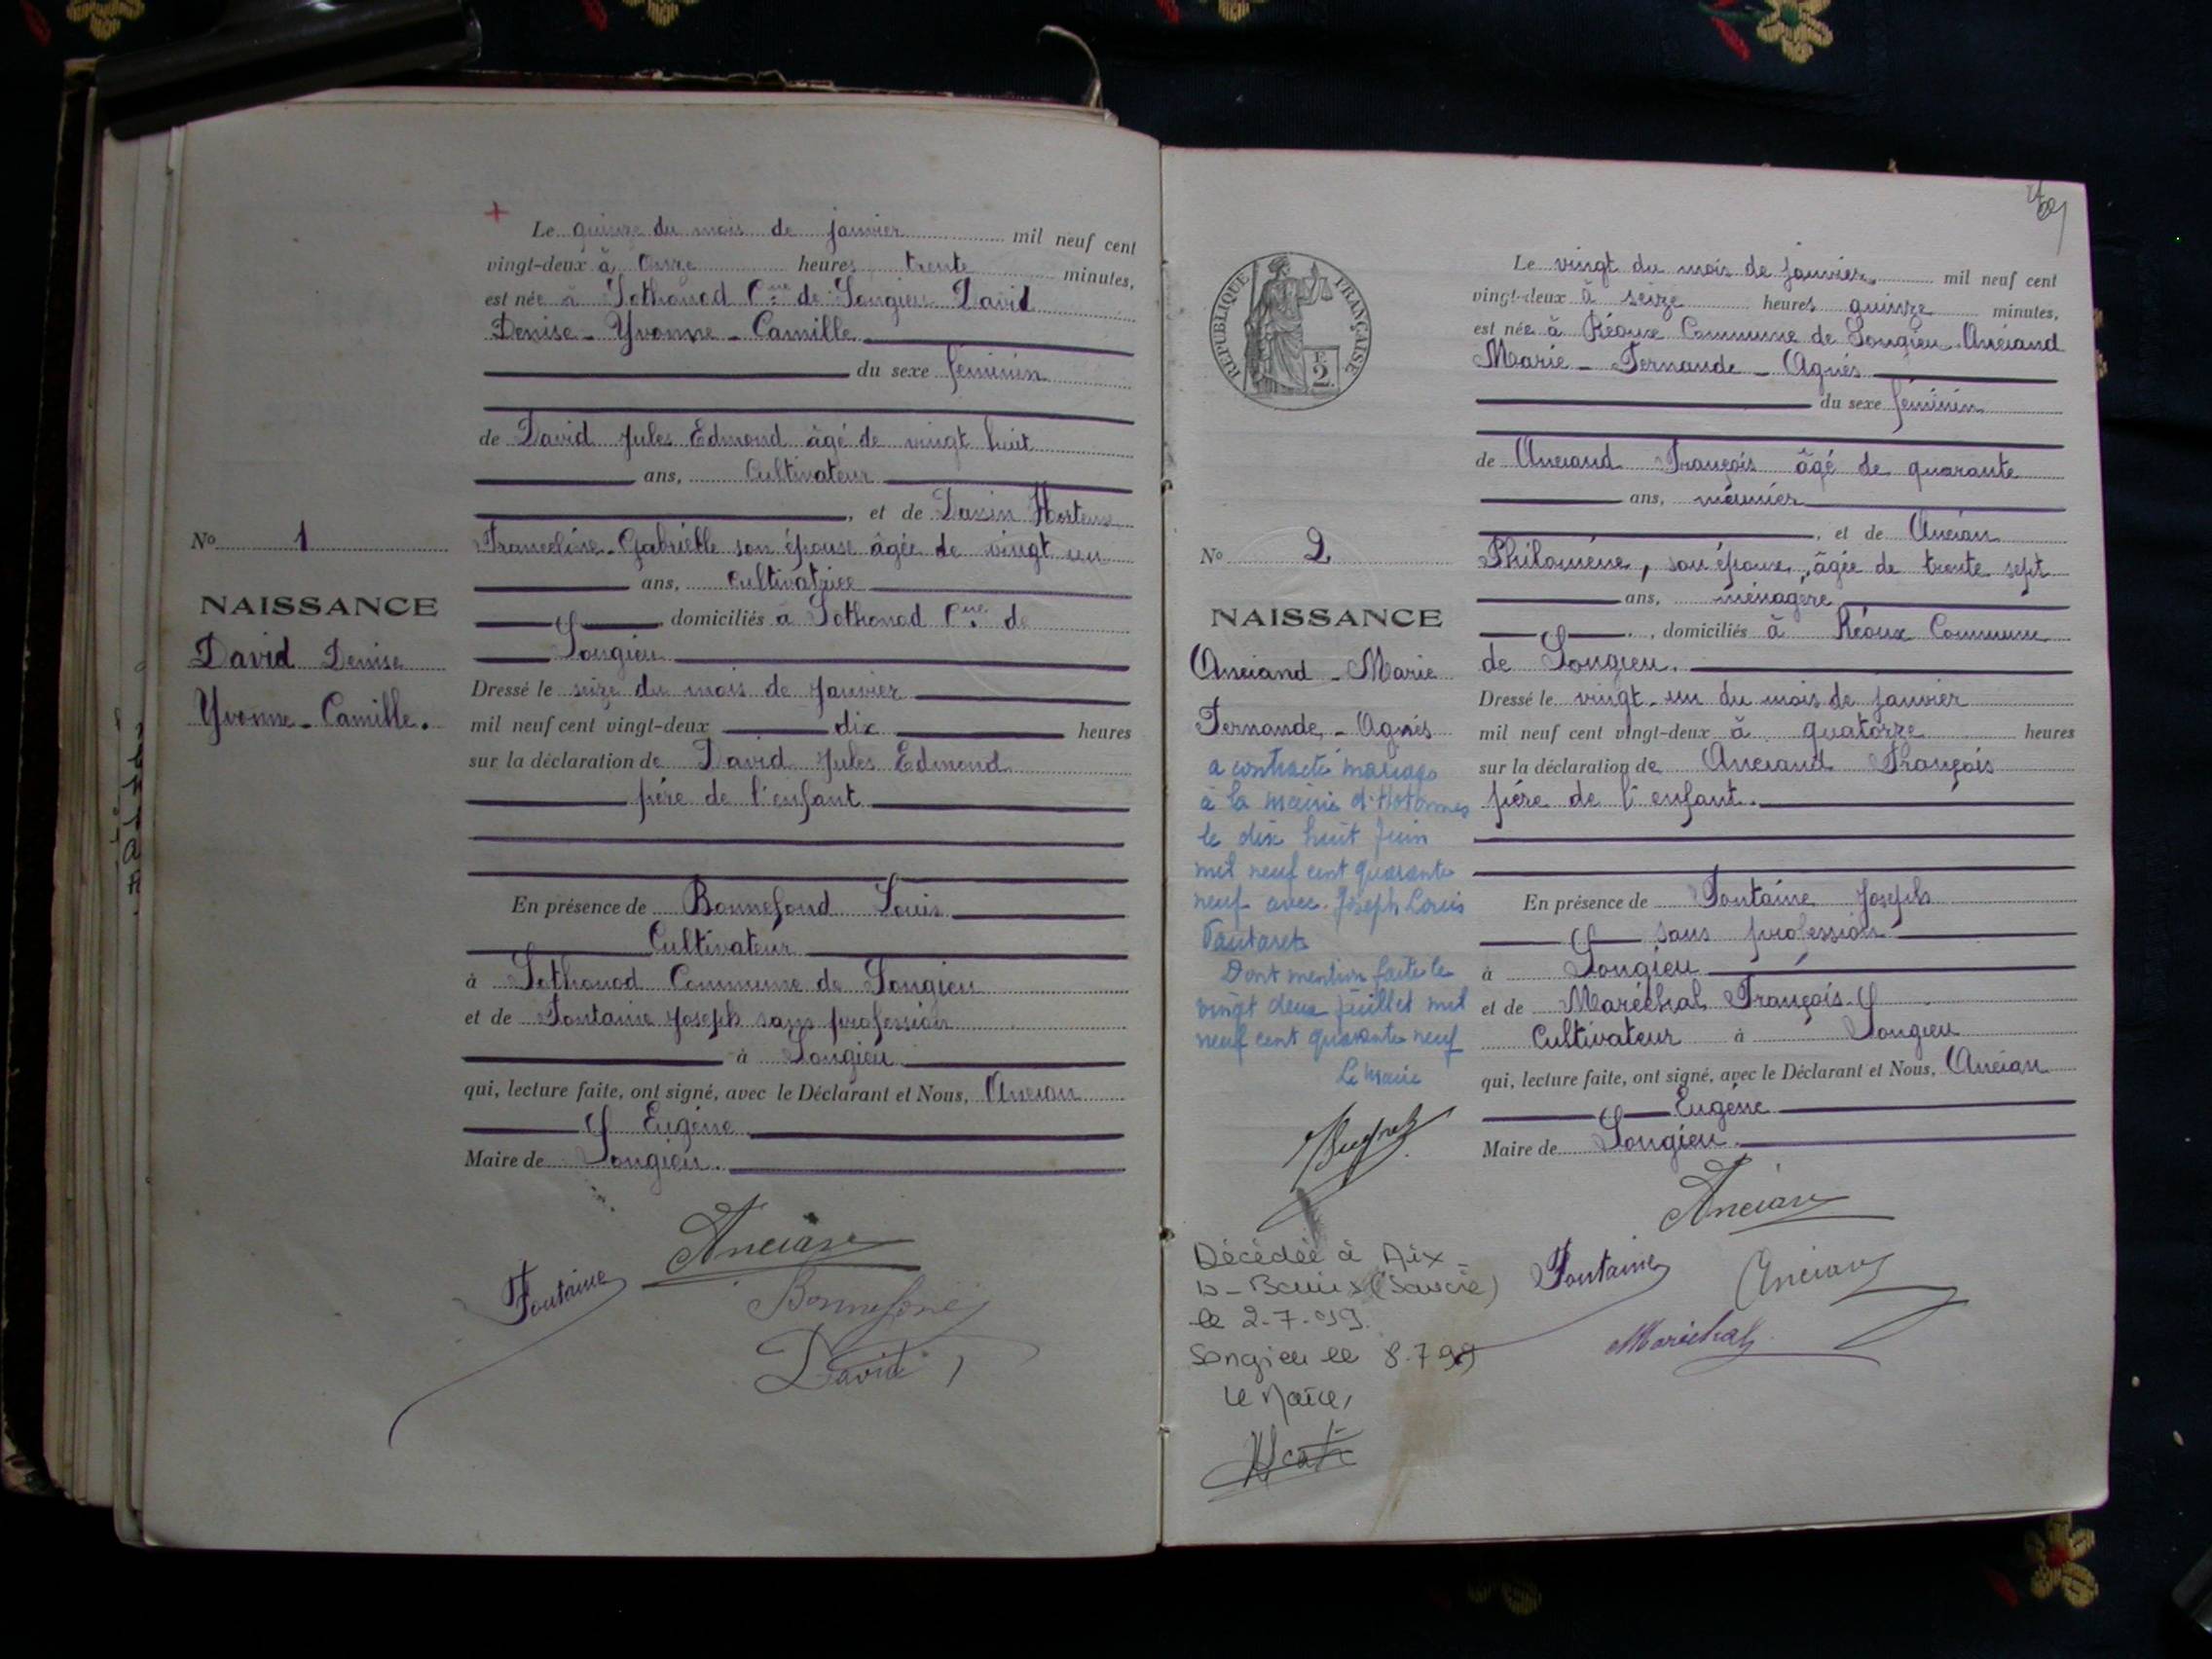 Le quinze du mois de janvier mil neuf cent
vingt-deux à onze heures trente minutes,
est née à Sothonod Cne de Songieu David
Denise - Yvonne - Camille
du sexe féminin
de David Jules Edmond âgé de vingt huit
ans, Cultivateur
, et de
Franceline - Gabrielle son épouse âgée de vingt un
ans, cultivatrice
domiciliés à Sothonod Cne de
Songieu
Dressé le seize du mois de Janvier
mil neuf cent vingt-deux dix heures
sur la déclaration de David Jules Edmond
père de l'enfant
En présence de Bonnefond Louis
Cultivateur
à Sothonod Commune de Songieu
et de Fontaine Joseph sans profession
à Songieu
qui, lecture faite, ont signé, avec le Déclarant et Nous, Ancian
Eugène
Maire de Songieu.
No 1
NAISSANCE
David Denise
Yvonne - Camille.
Ancian
Fontaine
Bonnefond
David
RÉPUBLIQUE FRANÇAISE
2
Le vingt du mois de janvier mil neuf cent
vingt-deux à seize heures quinze minutes,
est née à Réoux Commune de Songieu Anciand
Marie - Fernande - Agnès
du sexe féminin
de Anciand François âgé de quarante
ans, meunier
, et de Ancian
Philomène, son épouse, âgée de trente sept
ans, ménagère
, domiciliés à Réoux Commune
de Songieu.
Dressé le vingt-un du mois de janvier
mil neuf cent vingt-deux à quatorze heures
sur la déclaration de Anciand François
père de l'enfant.
En présence de Fontaine Joseph
sans profession
à Songieu
et de Maréchal François
Cultivateur à Songieu
qui, lecture faite, ont signé, avec le Déclarant et Nous, Ancian
Eugène
Maire de Songieu.
No 2
NAISSANCE
Anciand - Marie
Fernande - Agnès
a contracté mariage
à la mairie d'Hotonnes
le dix huit Juin
mil neuf cent quarante
neuf avec Joseph Louis
Dont mention faite le
vingt deux juillet mil
neuf cent quarante neuf
Le maire
Décédée à Aix-
le 2.7.99.
Songieu le 8.7.99
Le Maire,
Ancian
Fontaine
Anciand
Maréchal